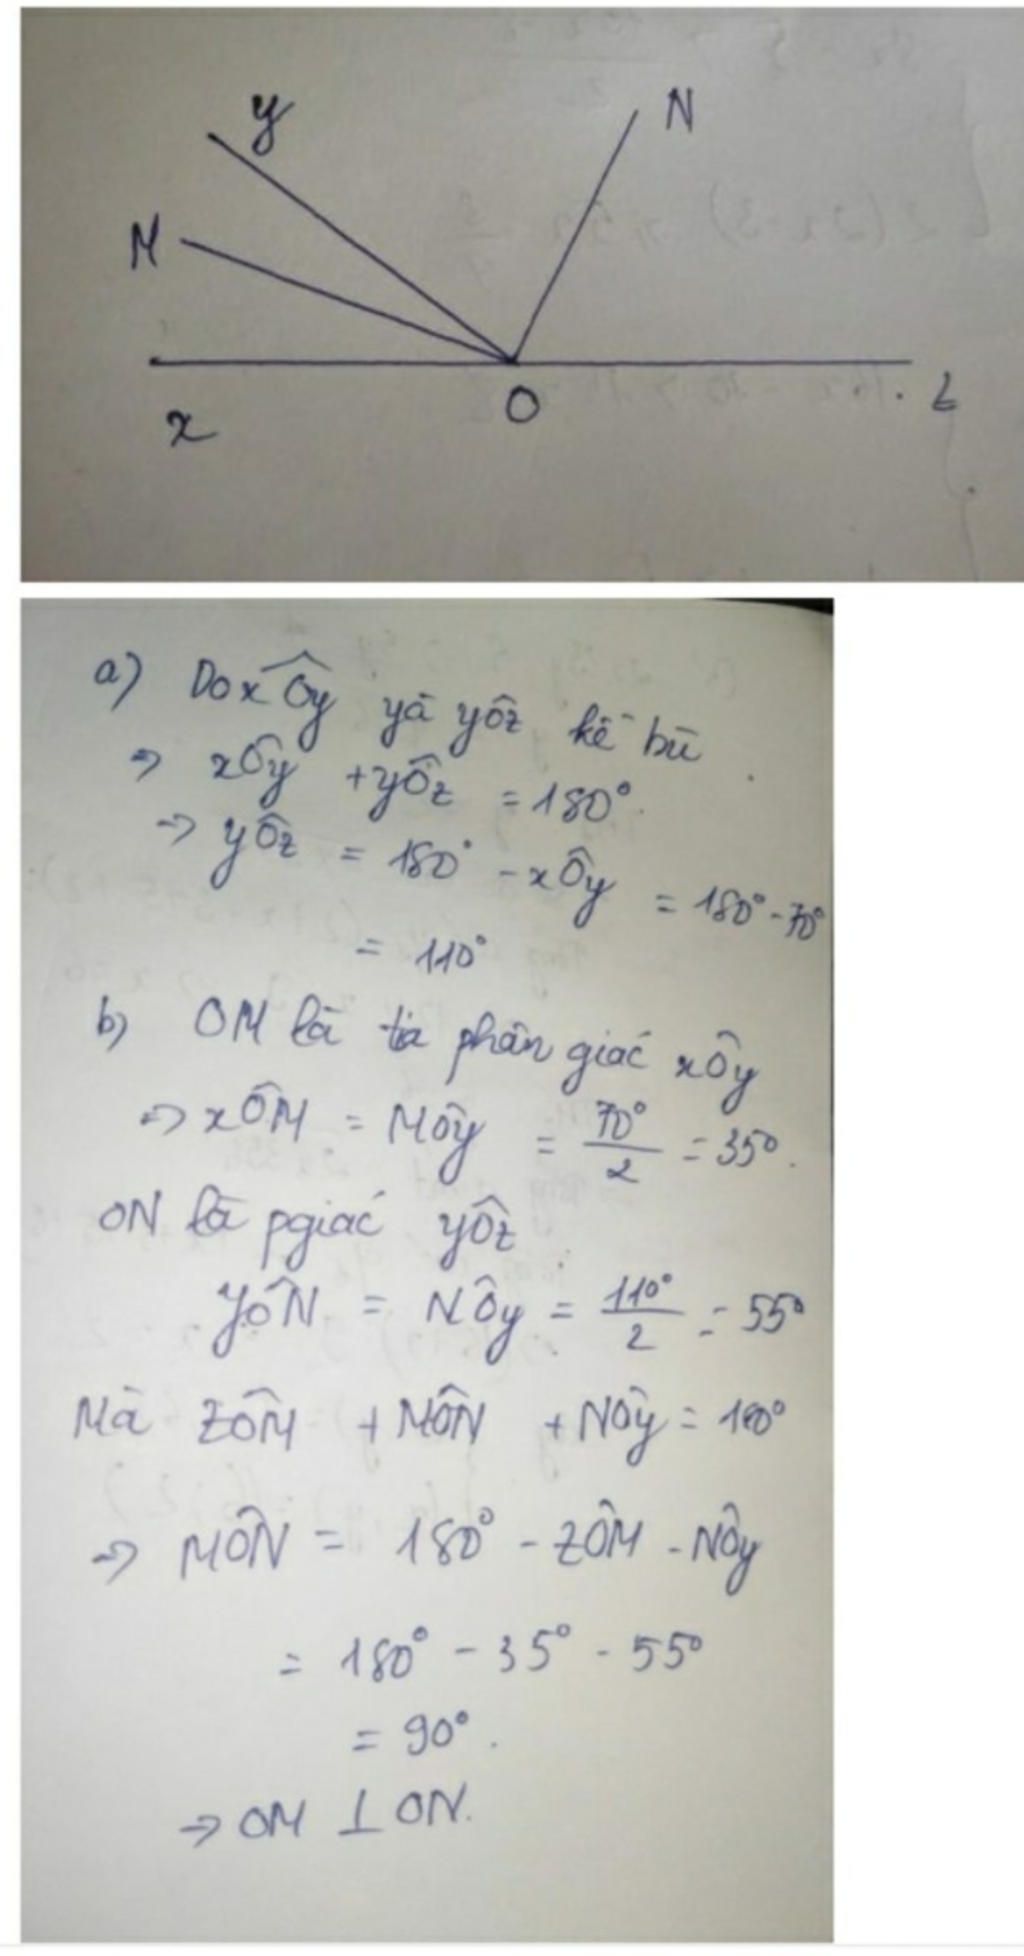 y
N
M
x
O
z
a) Do xÔy và yôz kề bù
⇒ xÔy + yÔz = 180°.
⇒ yÔz = 180° - xÔy = 180° - 70°
= 110°
b) OM là tia phân giác xÔy
⇒ xÔM = MÔy = 70°/2 = 35°.
ON là pgiác yÔz
YÔN = NÔy = 110°/2 = 55°
Mà ZÔM + MÔN + NÔy = 180°
⇒ MÔN = 180° - ZÔM - NÔy
= 180° - 35° - 55°
= 90°.
⇒ OM ⊥ ON.